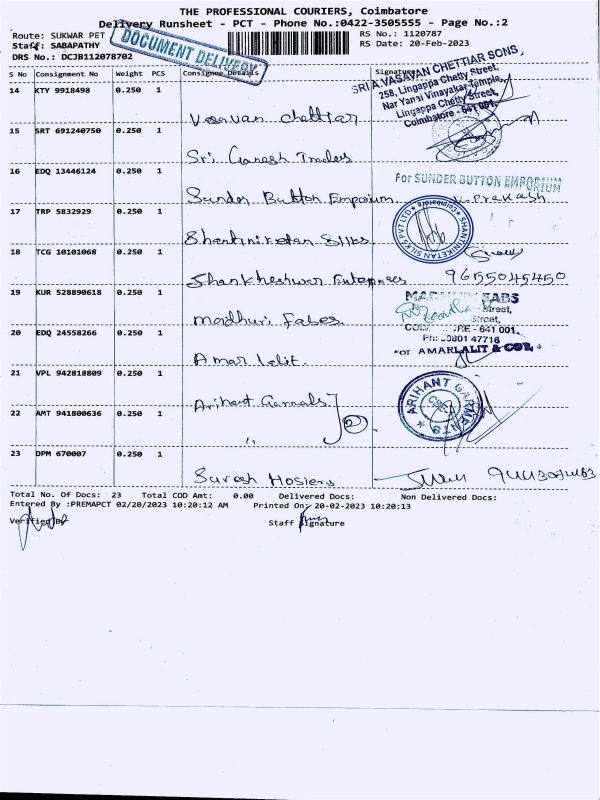 THE PROFESSIONAL COURIERS, Coimbatore
Delivery Runsheet - PCT - Phone No.:0422-3505555 - Page No.:2
Route: SUKWAR PET
RS No.: 1120787
Staff: SABAPATHY
RS Date: 20-Feb-2023
DRS No.: DCJB112078702
DOCUMENT DELIVERY
S No Consignment No Weight PCS Consignee Details Signature
14 KTY 9918498 0.250 1 Vasavan Chettiar
SRI A.VASAVAN CHETTIAR SONS,
258, Lingappa Chetty Street,
Nar Yansi Vinayakar Temple,
Lingappa Chetty Street,
Coimbatore - 641 001.
15 SRT 691240750 0.250 1 Sri Ganesh Traders
16 EDQ 13446124 0.250 1 Sunder Button Emporium
For SUNDER BUTTON EMPORIUM
Prakash
17 TRP 5832929 0.250 1 Shantiniketan Silks
SHANTINIKETAN SILKS PVT LTD
Coimbatore
18 TCG 10101068 0.250 1 Shankheshwar Enterprises
9655045450
19 KUR 528890618 0.250 1 Madhuri Fabes
FABS
Street,
RE - 641 001.
Ph: 0801 47716
20 EDQ 24558266 0.250 1 Amar Lalit
For AMARLALIT & CO
21 VPL 942818809 0.250 1 Arihant Garments
ARIHANT GARMENTS
22 AMT 941800636 0.250 1 〃 2
23 DPM 670007 0.250 1 Suresh Hosiery
Total No. Of Docs: 23 Total COD Amt: 0.00 Delivered Docs: Non Delivered Docs:
Entered By :PREMAPCT 02/20/2023 10:20:12 AM Printed On: 20-02-2023 10:20:13
Verified By
Staff Signature